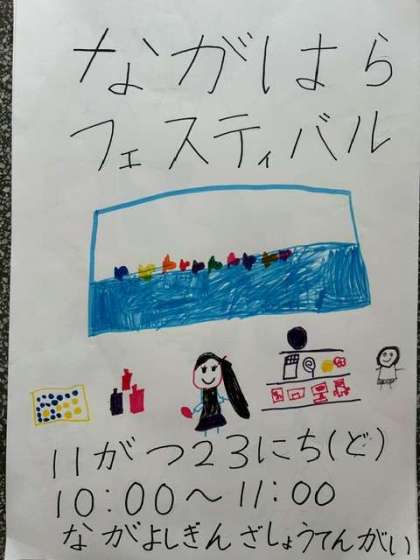 ながはら
フェスティバル
11がつ23にち(ど)
10:00～11:00
ながよしぎんざしょうてんがい